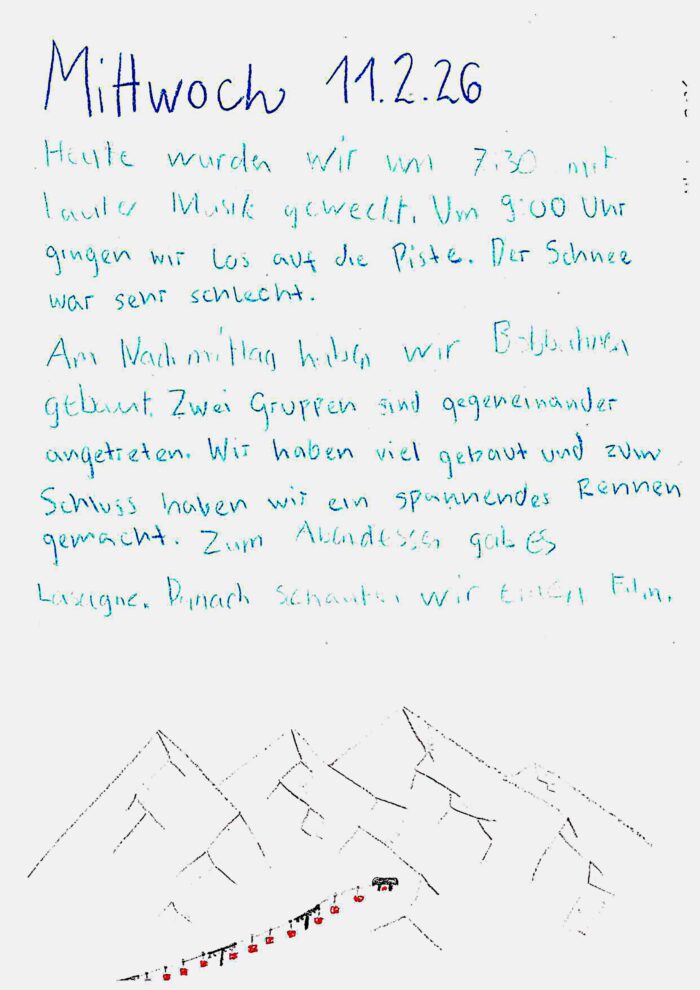 Mittwoch 11.2.26
Heute wurden wir um 7:30 mit
lauter Musik geweckt. Um 9:00 Uhr
gingen wir los auf die Piste. Der Schnee
war sehr schlecht.
Am Nachmittag haben wir Bobbahnen
gebaut. Zwei Gruppen sind gegeneinander
angetreten. Wir haben viel gebaut und zum
Schluss haben wir ein spannendes Rennen
gemacht. Zum Abendessen gab Es
Lasagne. Danach schauten wir einen Film.